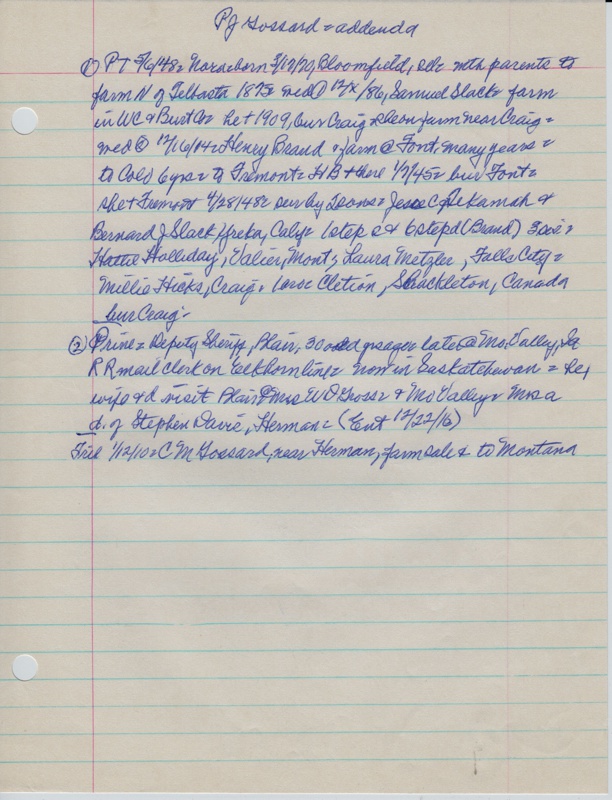 PJ Gossard = addenda
① PT 5/6/48 = Nora = born 3/17/70, Bloomfield, = with parents to
farm N of Tekamah 187 = wed ① 12/x/86, Samuel Slack = farm
in WC & Burt Co = he + 1909, bur Craig = on farm near Craig =
wed ② 12/16/14 = Henry Brand & farm @ Font. many years =
to Cold 6 yrs = to Fremont = HB + there 1/2/45 = bur Font =
she + Fremont 4/28/48 = sur by 2 sons = Jesse C, Tekamah &
Bernard J Slack, Yreka, Calif = 1 step s & 6 step d (Brand) 3 sis =
Hattie Holladay, Valier, Mont; Laura Metzler, Falls City =
Millie Hicks, Craig. 1 bro = Cletion, Shackleton, Canada
bur Craig.
② Prine = Deputy Sheriff, Blair, 30 odd yrs ago & later @ Mo. Valley, Ia
RR mail clerk on Elkhorn line = now in Saskatchewan = he,
wife & d visit Blair @ Mrs W D Gross & Mo Valley = Mrs a
d. of Stephen Davis, Herman = (Ent 12/22/16)
Trib 1/12/10 = C M Gossard, near Herman, farm sale & to Montana